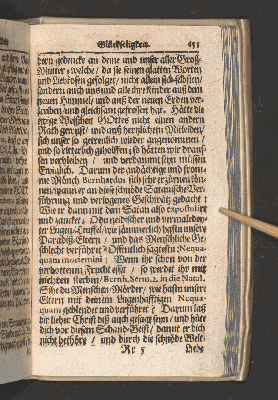 Glückseligkeit. 633
dern gedencke an deine und unser aller Groß-
Mutter / welche / da sie seinen glatten Worten
und Liebkosen gefolget / nicht allein sich selbsten /
sondern auch uns und alle ihre Kinder auß dem
neuen Himmel / und auß der neuen Erden ver-
und gleichsam gestossen hat. Hätte die
ewige Weißheit Gottes nicht einen andern
Rath gewust / und auß hertzlichem Mitleiden /
sich unser so getreulich wieder angenommen /
und so ritterlich geholffen / so hätten wir drauf-
sen verbleiben / und verdammt seyn müssen
Ewiglich. Darum der andächtige und from-
me Mönch Bernhardus sich sehr erzürnen kön-
nen / wann er an diese schnöde Satanische Ver-
führung und verlogenes Geschwätz gedacht
Wie er dann mit dem Satan also expostulirt
und zancket: O du neidischer und vermaledey-
ter Lugen-Teuffel / wie jämmerlich hast du unsere
Paradiß-Eltern / und das Menschliche Ge-
schlecht verführet? Offentlich sagtestu Nequa-
quam moriemini: Wenn ihr schon von der
verbottenen Frucht esset / so werdet ihr mit
nichten sterben / Bern. Serm. 2. in die Natal.
Sihe du Menschen-Mörder / wie hastu unsere
Eltern mit deinem Lugenhafftigen Nequa-
quam geblendet und verführet? Darum laß
dir lieber Christ diß auch gesagt seyn / und hüte
dich vor diesem Schand-Geist / damit er dich
nicht bethöre / und durch die schnöde Welt-
Rr 5 Liebe